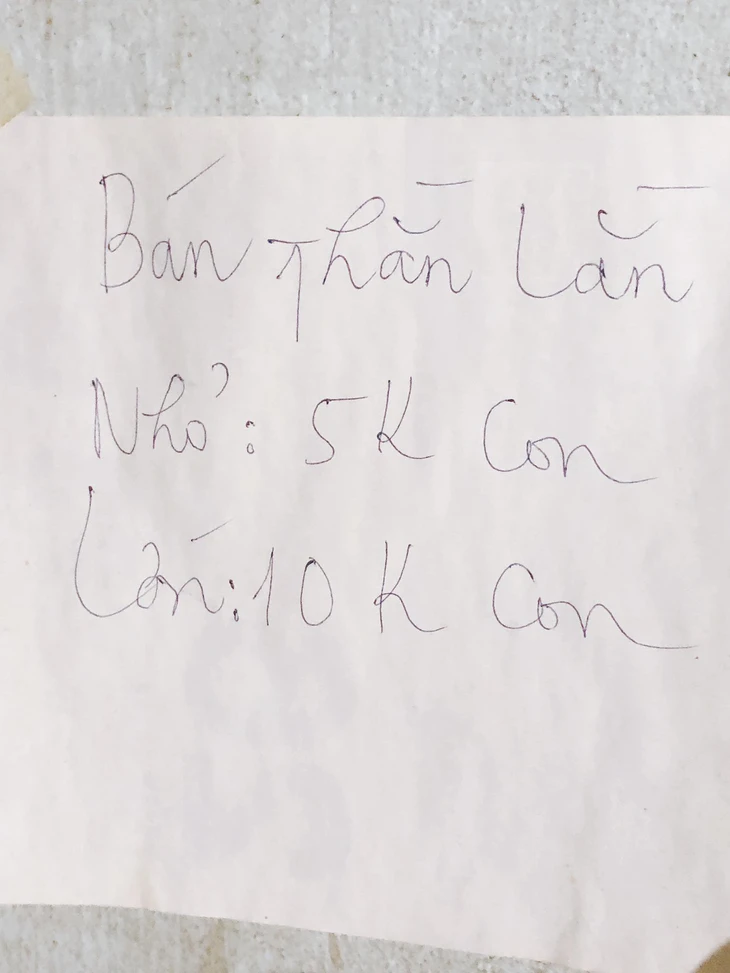 Bán Thằn Lằn
Nhỏ: 5K Con
Lớn: 10K Con